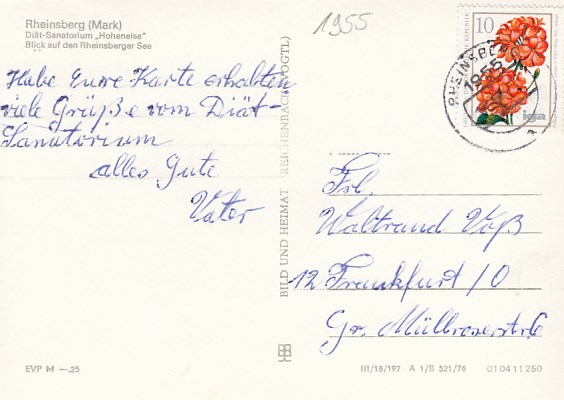 Rheinsberg (Mark)
Diät-Sanatorium „Hohenelse"
Blick auf den Rheinsberger See
1955
10
RHEINSBERG
1955
iga
Habe Eure Karte erhalten
viele Grüße vom Diät-
Sanatorium
alles Gute
Vater
BILD UND HEIMAT REICHENBACH (VOGTL)
Frl.
Waltraud Voß
12 Frankfurt/O
Gr. Müllroserstr 6
EVP M —.25
III/18/197 A 1/B 521/76
01 04 11 250